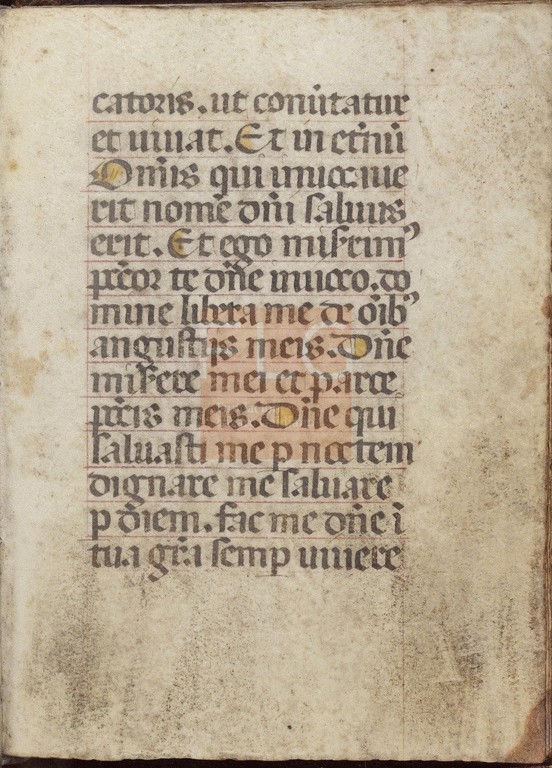 catoris. ut conũtatur
et uiuat. Et in etñũ
Om̃is qui inuocaue
rit nomẽ dñi saluus
erit. Et ego miserim⁹
pctor te dñe inuoco. do
mine libera me de oĩb⁹
angustijs meis. Dñe
miserere mei et parce
pctis meis. Dñe qui
saluasti me p noctem
dignare me saluare
p diem. fac me dñe ĩ
tua gr̃a semp uiuere